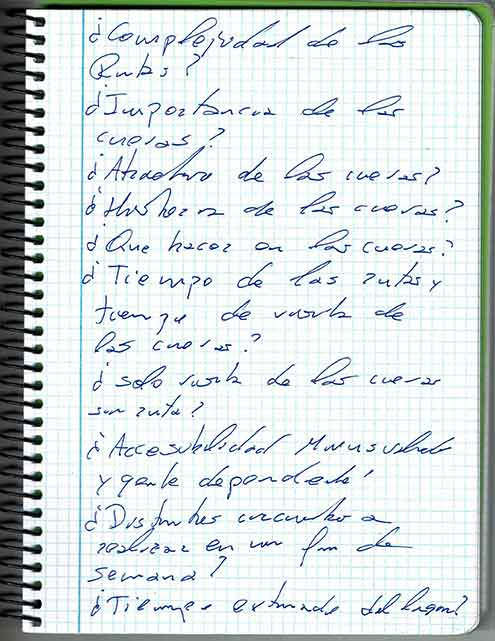 ¿Complejidad de las
Rutas?
¿Importancia de las
cuevas?
¿Atractivo de las cuevas?
¿Historia de las cuevas?
¿Que hacer en las cuevas?
¿Tiempo de las rutas y
tiempo de visita de
las cuevas?
¿solo visita de las cuevas
sin ruta?
¿Accesibilidad Minusvalido
y gente dependiente
¿Distintos circuitos a
realizar en un fin de
semana?
¿Tiempo estimado del lugar?